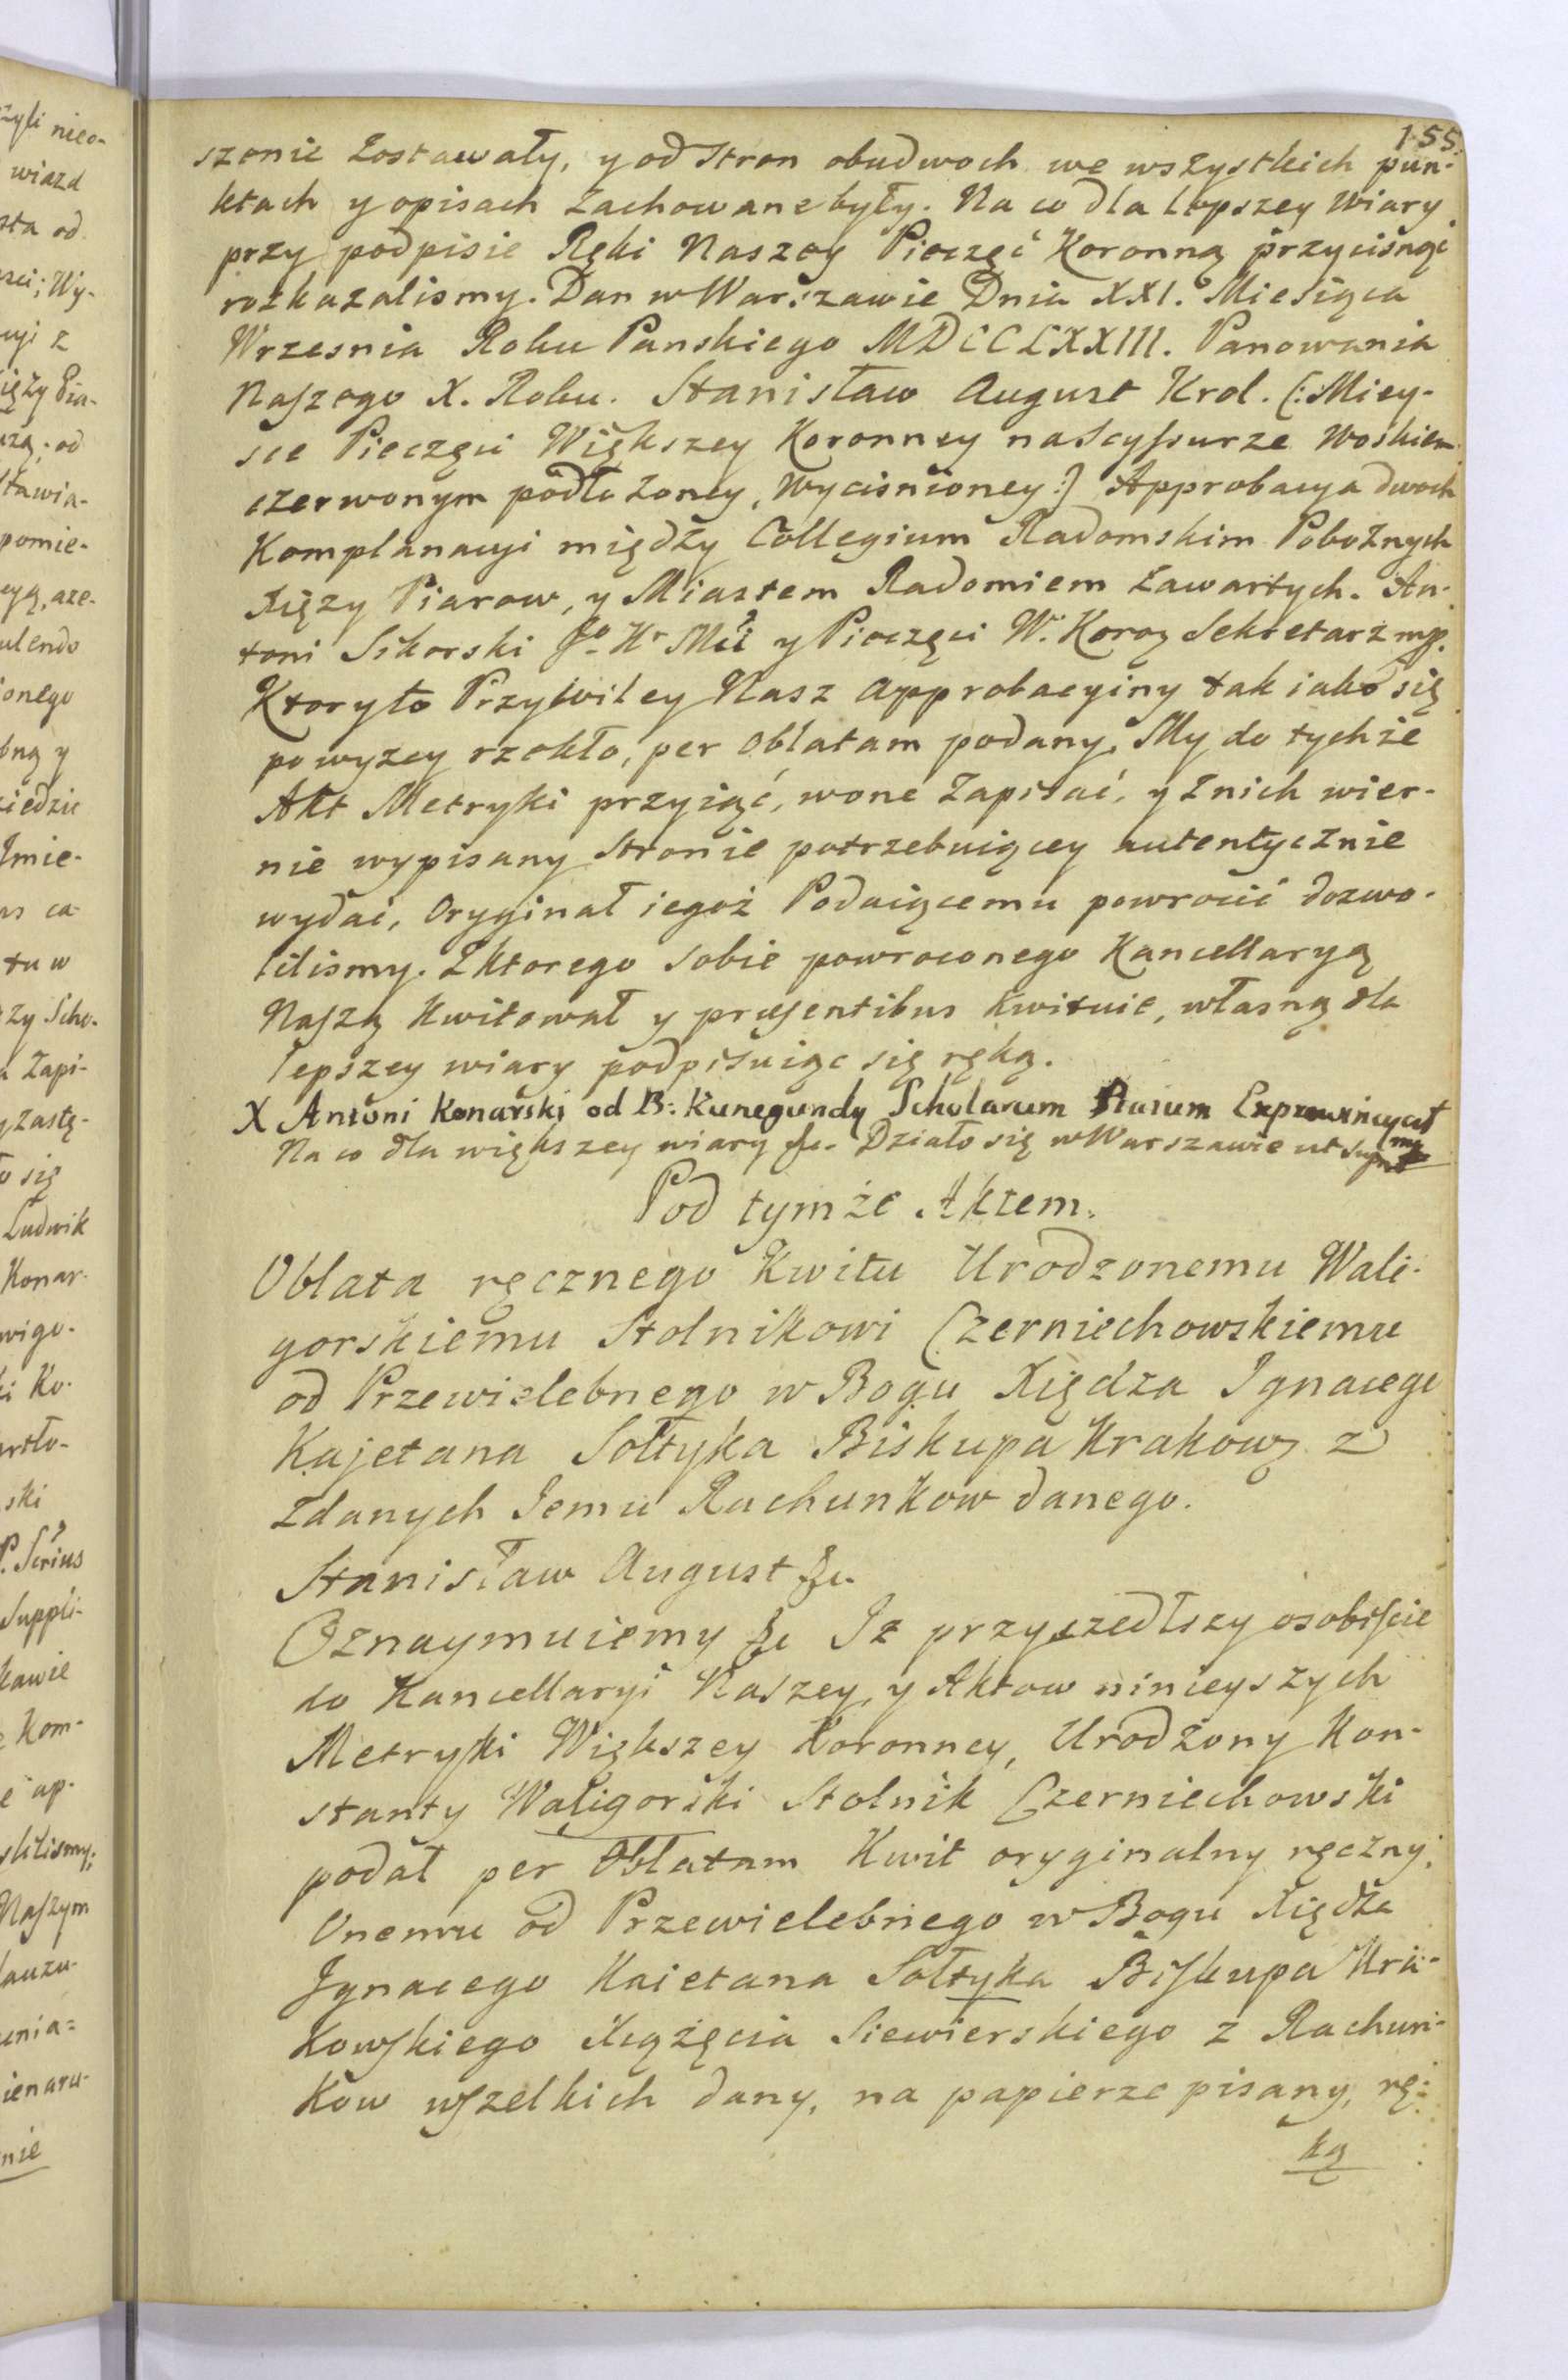 155.
szenie zostawały, y od stron obudwoch we wszystkich pun-
ktach y opisach zachowane były. Na co dla lepszey wiary
przy podpisie Ręki Naszey Pieczęć Koronną przycisnąć
rozkazalismy. Dan w Warszawie Dnia XXI. Miesiąca
Wrzesnia Roku Panskiego MDCCLXXIII. Panowania
Naszego X. Roku. Stanisław August Krol. (: Miey-
sce Pieczęci Większey Koronney na Scyssurze woskiem
czerwonym podłożoney, wycisnioney :) Approbacya dwoch
Komplanacyi między Collegium Radomskim Pobożnych
Xięzy Piarow, y Miastem Radomiem zawartych. An-
toni Sikorski Jo Kr Mci y Pieczęci W. Koroy Sekretarz mp.
Ktoryto Przywiley Nasz approbacyiny tak iako się
powyzey rzekło, per Oblatam podany, My do tychże
Akt Metryki przyiąć, w one zapisać, y z nich wier-
nie wypisany stronie potrzebuiącey autentycznie
wydać, Oryginał iegoż Podaiącemu powrocić dozwo-
lilismy. Z ktorego sobie powroconego Kancellaryą
Naszą kwitował y præsentibus kwituie, własną dla
lepszey wiary podpisuiąc się ręką.
X Antoni Konarski od B: Kunegundy Scholarum Piarum Exprowincyał
mp
Na co dla większey wiary &c. Działo się w Warszawie ut supra
Pod tymże Aktem.
Oblata ręcznego Kwitu Urodzonemu Wali-
gorskiemu Stolnikowi Czerniechowskiemu
od Przewielebnego w Bogu Xiędza Ignacego
Kajetana Sołtyka Biskupa Krakowy z
zdanych Jemu Rachunkow danego.
Stanisław August &c.
Oznaymuiemy &c Iz przyszedłszy osobiscie
do Kancellaryi Naszey, y Aktow ninieyszych
Metryki Większey Koronney, Urodzony Kon-
stanty Waligorski Stolnik Czerniechowski
podał per Oblatam Kwit oryginalny ręczny,
Onemu od Przewielebnego w Bogu Xiędza
Ignacego Kaietana Sołtyka Biskupa Kra-
kowskiego Xiążęcia Siewierskiego z Rachun-
kow wszelkich dany, na papierze pisany, rę-
ką